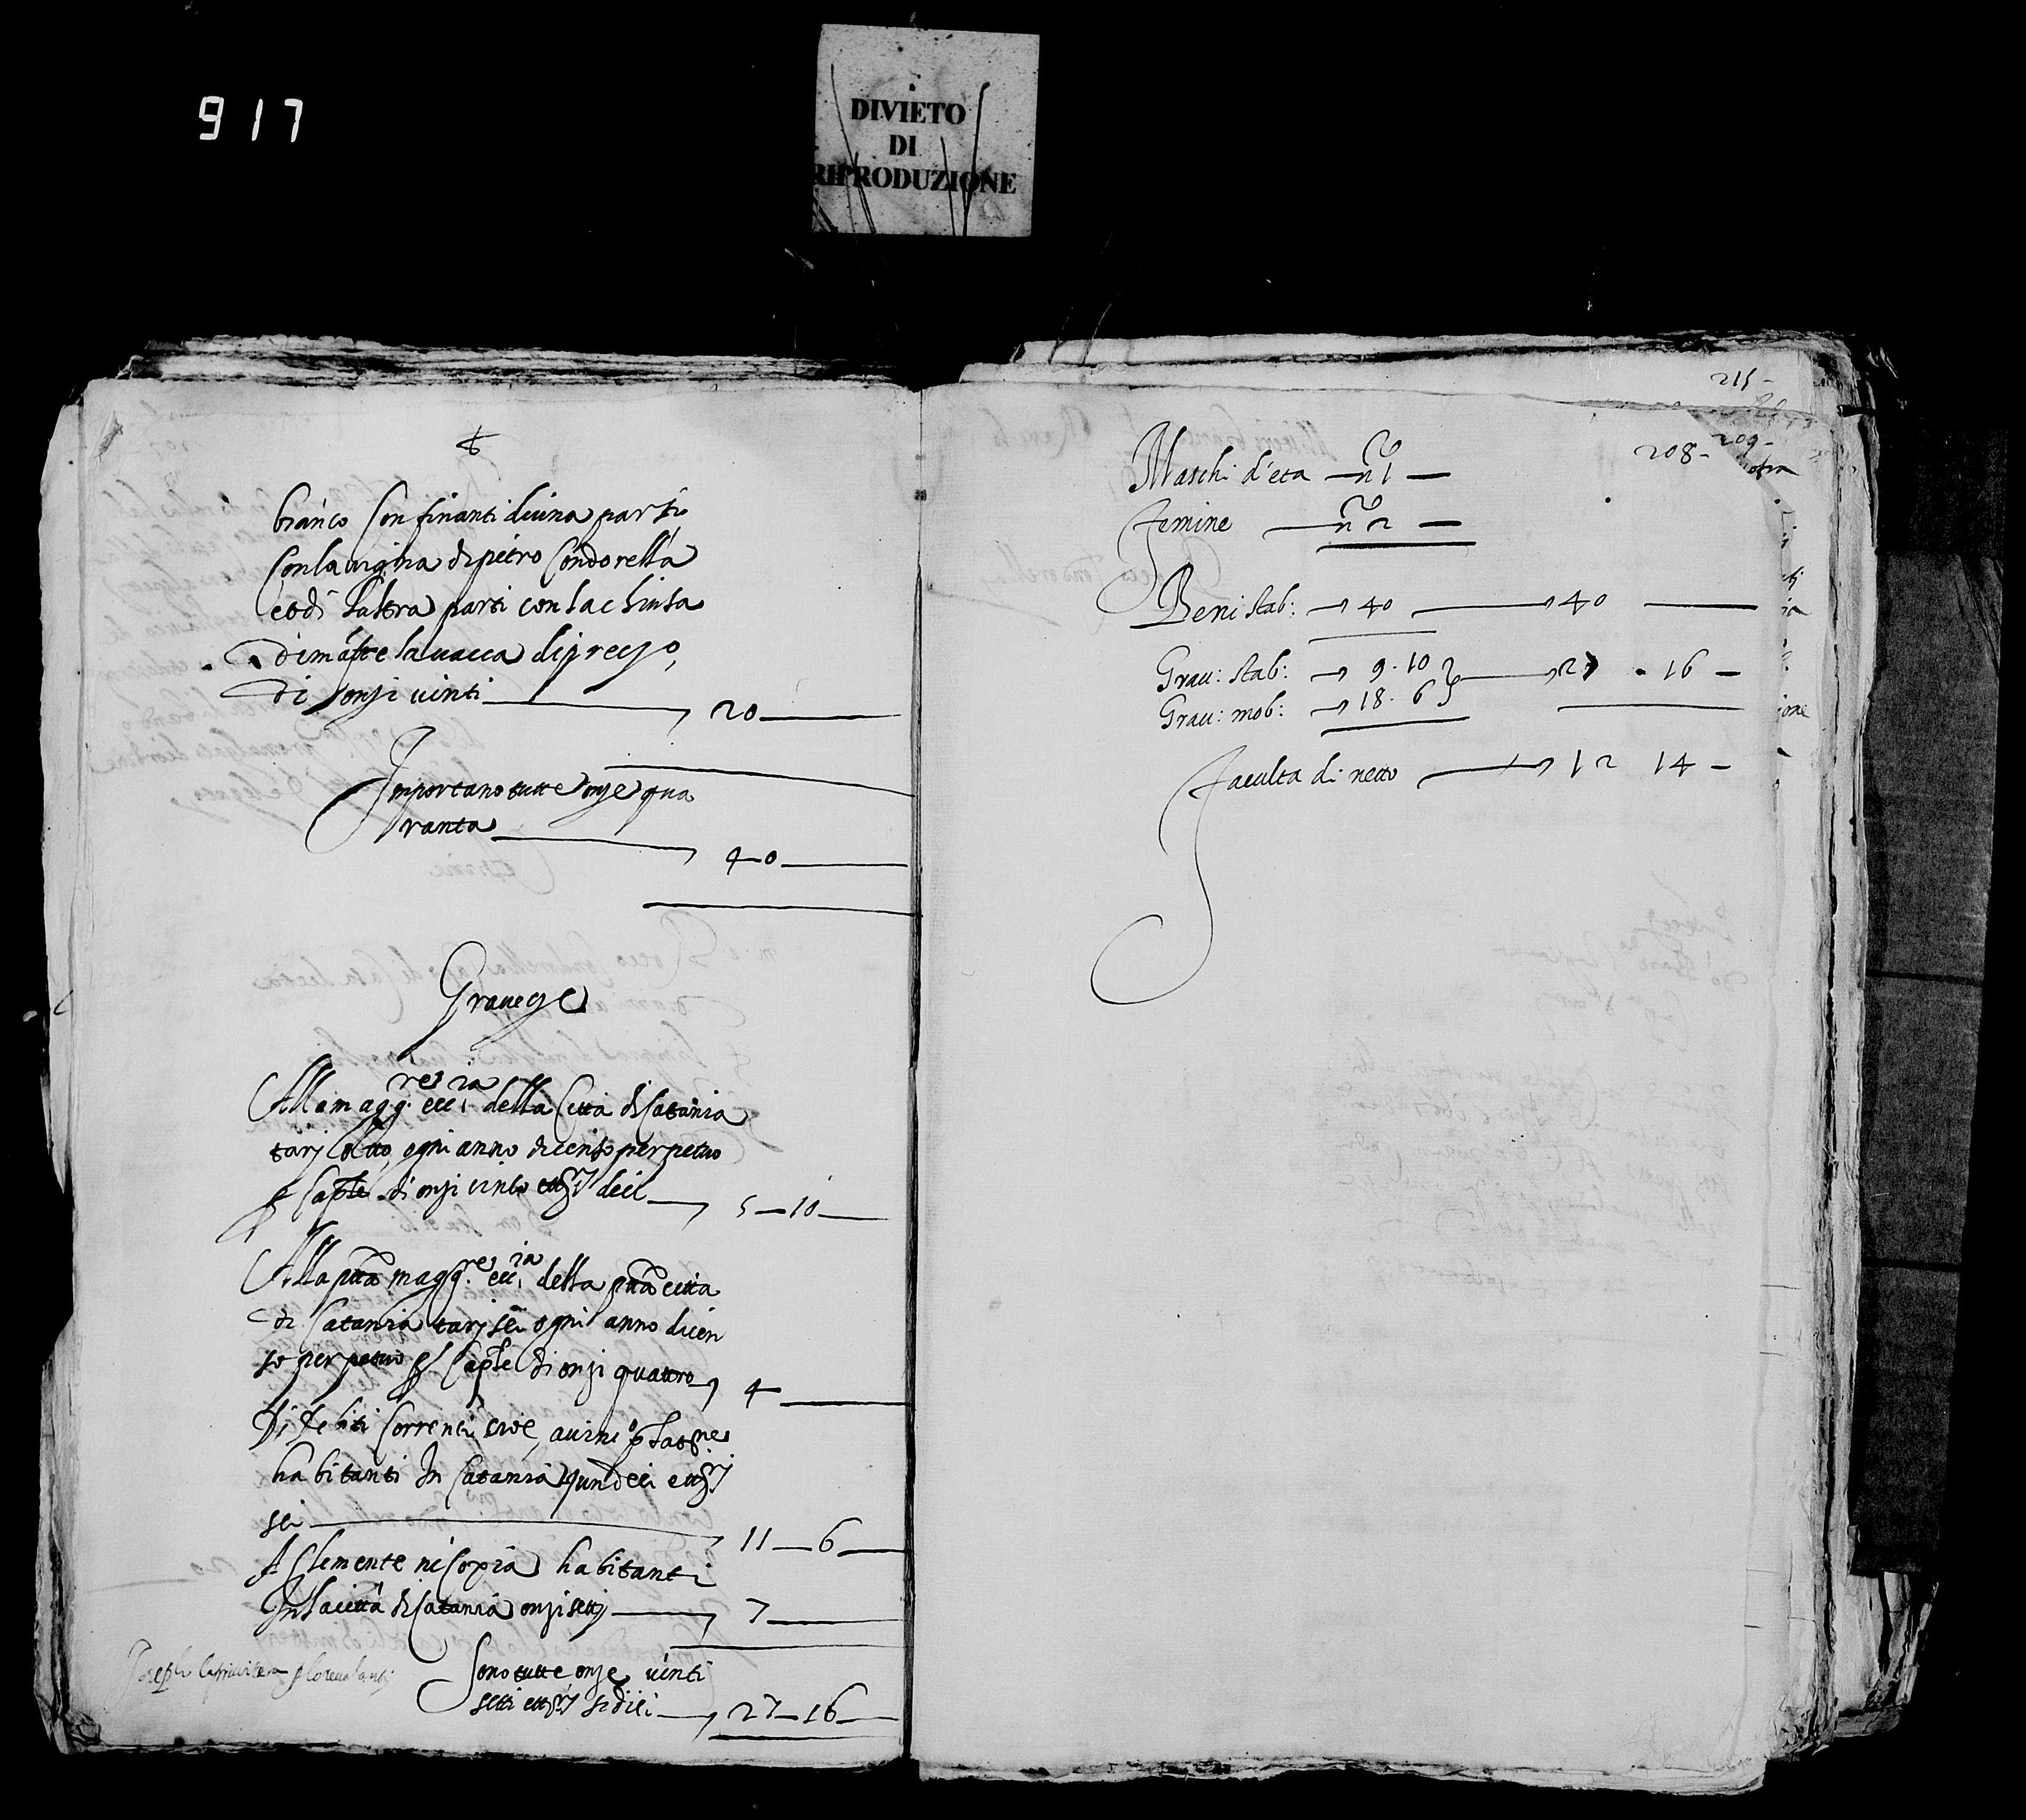 917
DIVIETO
DI
RIPRODUZIONE
bianco Confinanti di una parti
Con la vigna di pietro Condorella
et di l'altra parti con la chiusa
di la vacca di prezzo
di onzi vinti 20
Importano tutte onze qua
ranta 40
Graveze
Alla magg.re ecc.ia della Città di Catania
tarj otto ogni anno di censo perpetuo
p Caple di onzi cinco et tt.rj deci 5 10
Alla ptta magg.re ecc.ia della ptta città
di Catania tarj sei ogni anno di cen
so perpetuo p Caple di onzi quattro 4
Di debiti Correnti cioè
habitanti In Catania et tt.rj
sei 11 6
A Clemente nicoxia habitanti
In la città di Catania onzi setti 7
Sono tutte onze vinti
setti et tt.rj sidici 27 16
215
209
208
Maschi d'eta n.o 1
femine n.o 2
Beni stab: 40 40
Grav: stab: 9. 10 27 . 16
Grav: mob: 18. 6
faculta di netto 12 14